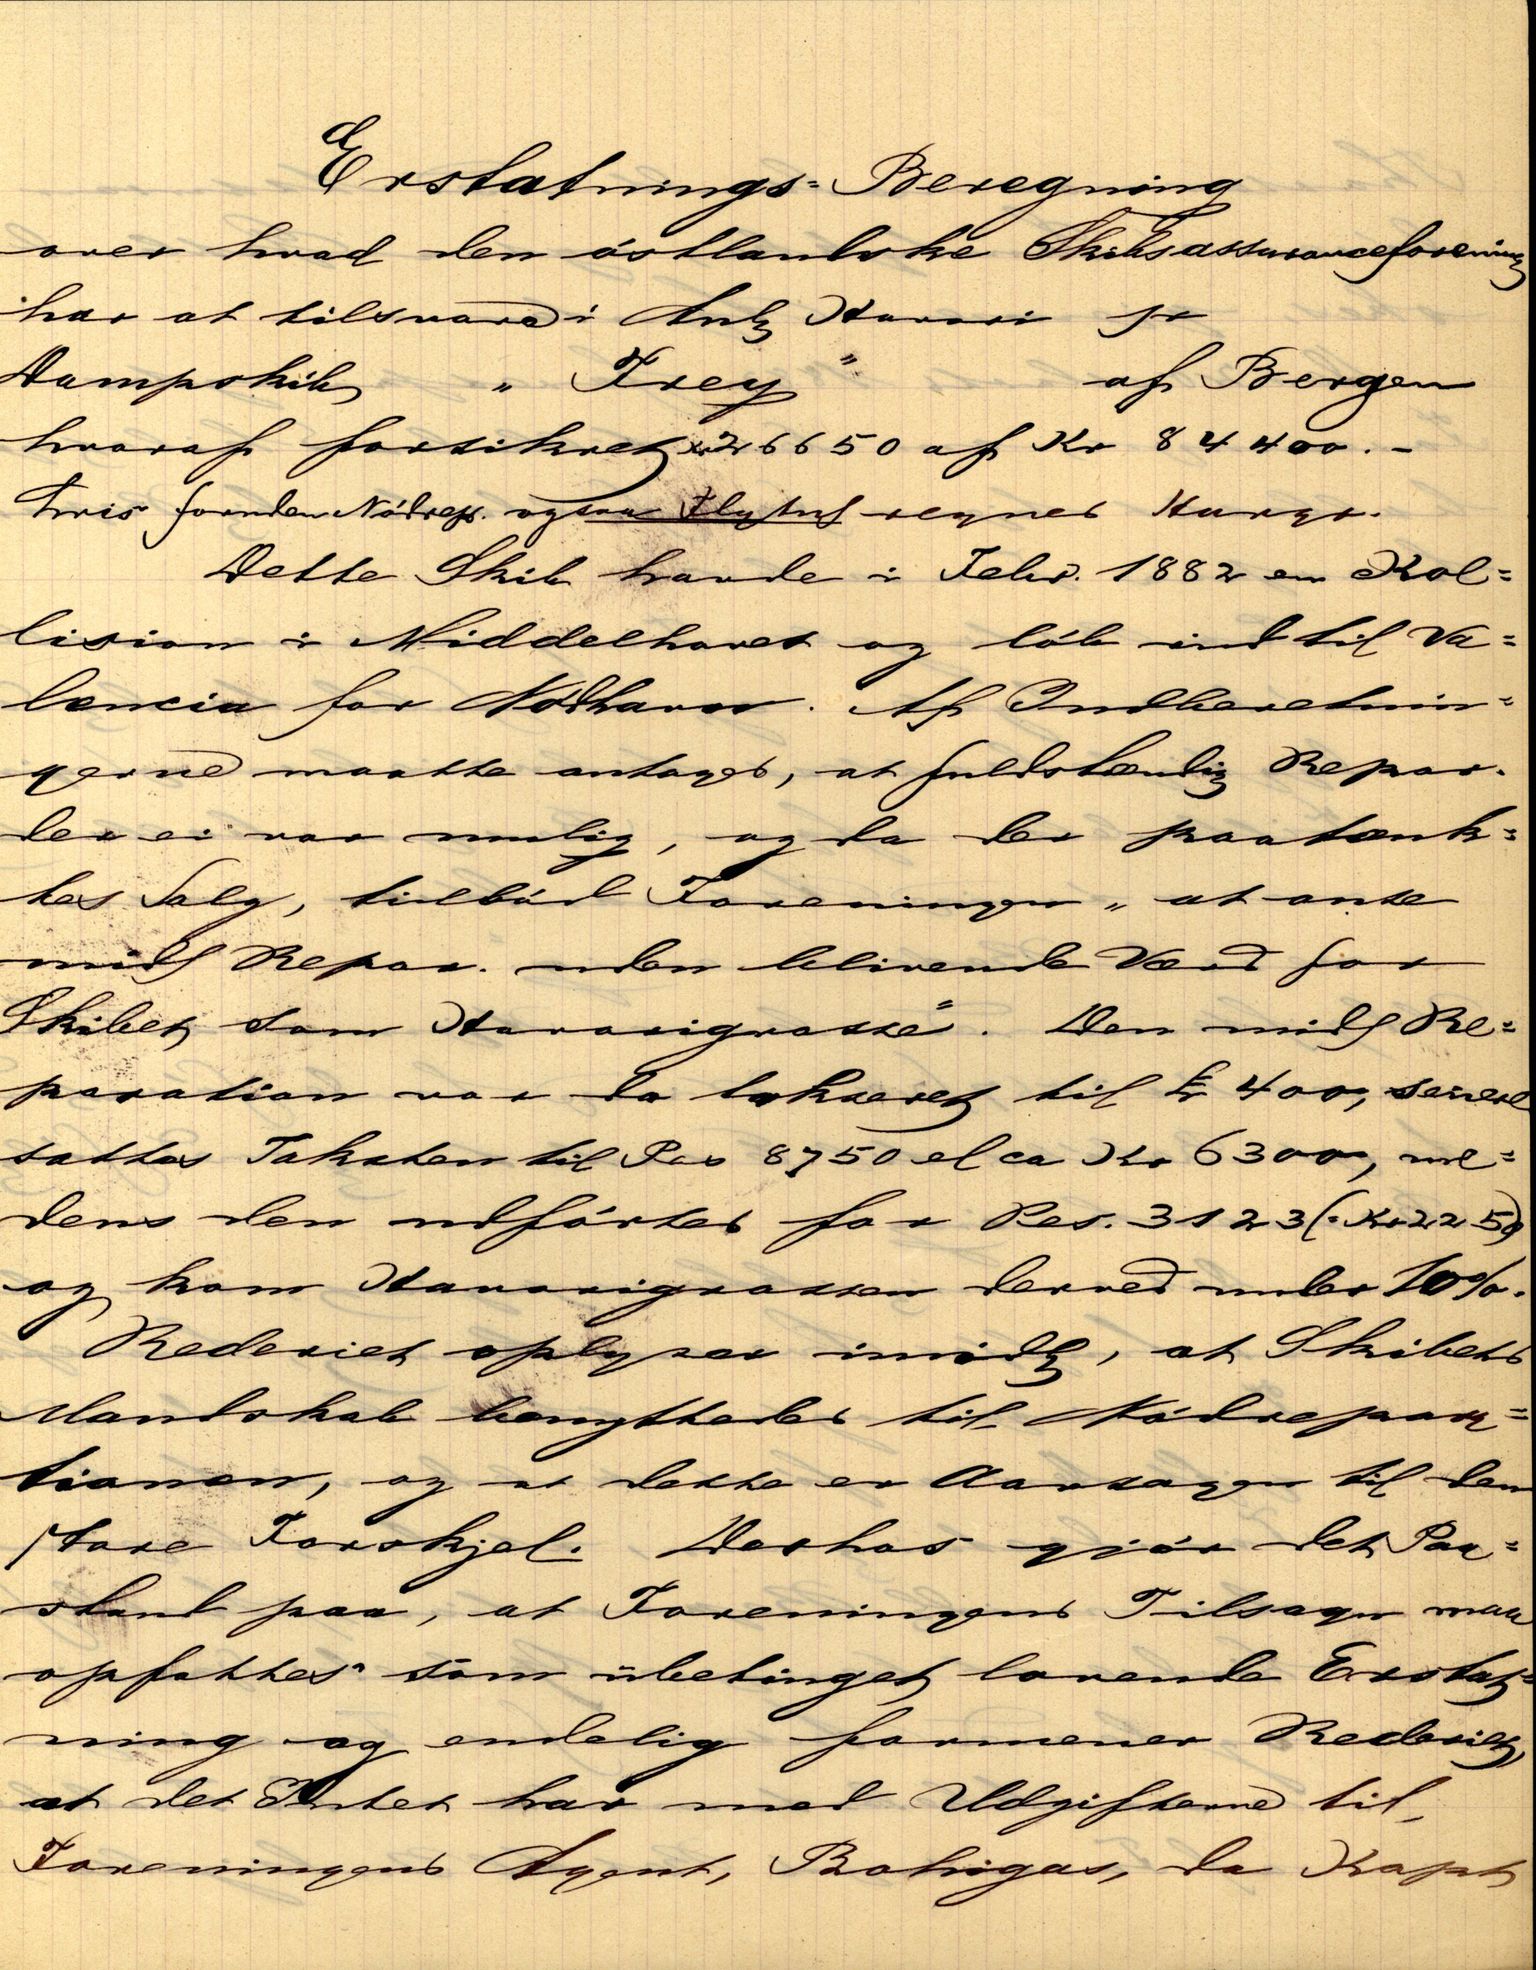 Erstatnings=Beregning
over hvad den östlandske Skibsassuranceforening
har at tilsvare i Anlg Havari pr
Dampskib „ Frey " af Bergen
hvoraf forsikret Kr 26650 af Kr 84400.–
hvis foruden Nödrep. ogsaa Flytns regnes Havgr.
Dette Skib havde i Febr. 1882 en Kol=
lision i Middelhavet og löb ind til Va=
lencia for Nödhavn. Af Indberetnin=
gerne maatte antages, at fuldstændig Repar.
der ei var mulig, og da der paatænk=
tes Salg, tilböd Foreningen „ at anse
midl Repar. uden blivende Værd for
Skibet som Havarigrosse". Den midl Re=
paration var da takseret til £ 400, senere
sattes Taksten til Pes 8750 el ca Kr 6300, me=
dens den udförtes for Pes. 3123 (: Kr 2250)
og kom Havarigrossen derved under 10%.
Rederiet oplyser imidl, at Skibets
Mandskab benyttedes til Nödrepara=
tionen, og at dette er Aarsagen til den
store Forskjel. Derhos gjör det Paa=
stand paa, at Foreningens Tilsagn maa
opfattes som ubetinget lovende Erstat=
ning og endelig formener Rederiet,
at det Intet har med Udgifterne til
Foreningens Agent, Bohigas, da Kapt